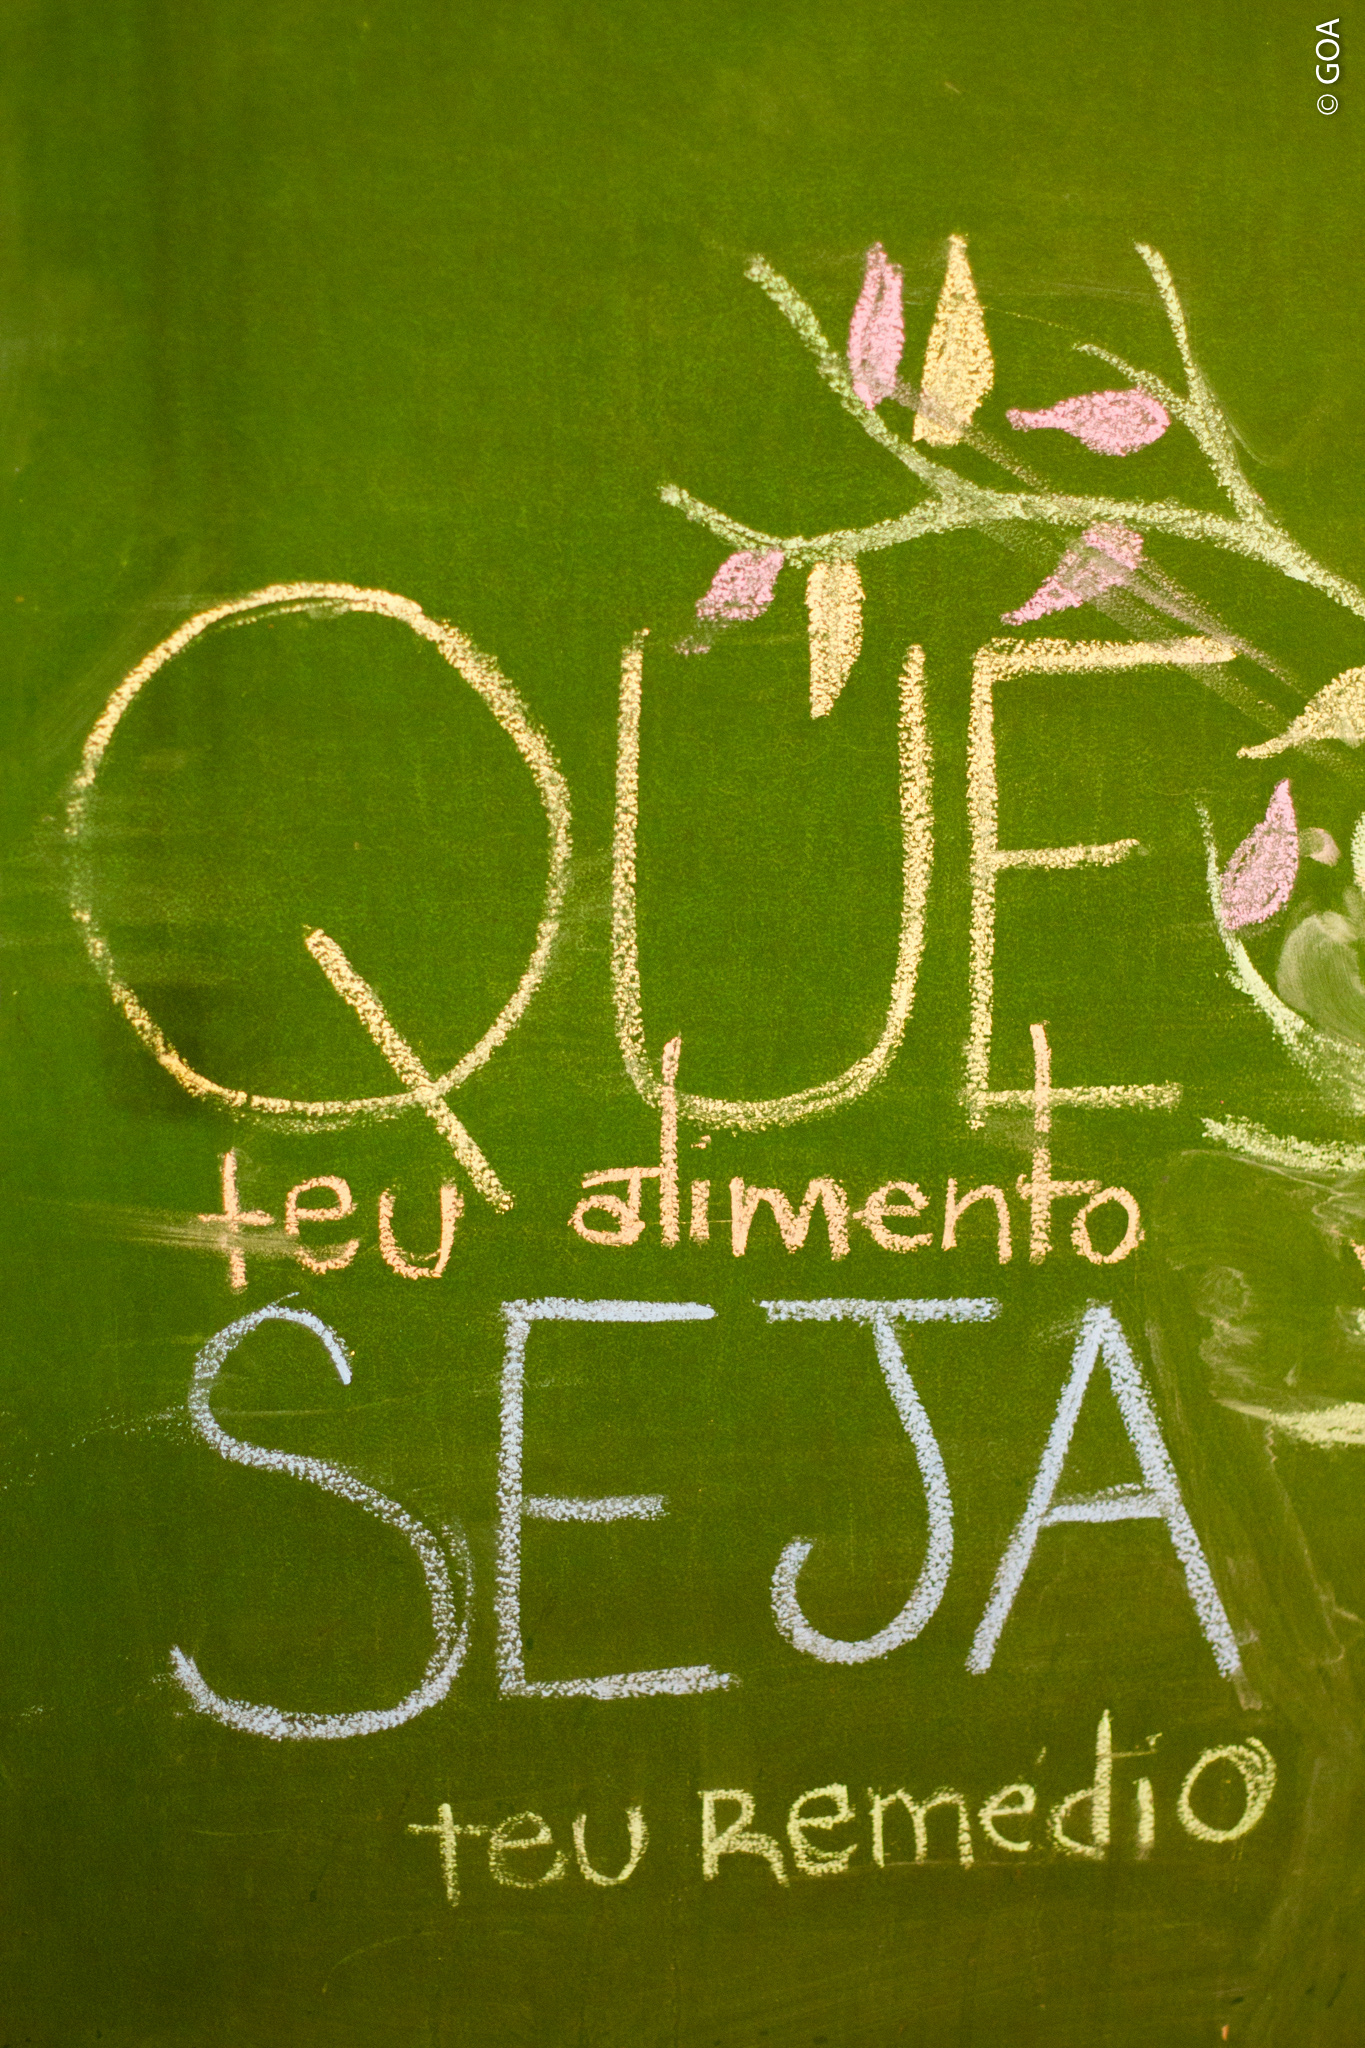 © GOA
QUE
teu alimento
SEJA
teu Remédio